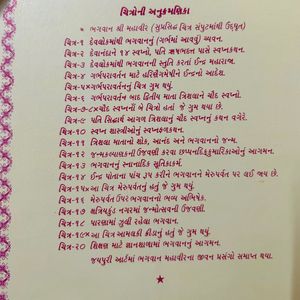 ચિત્રોની અનુક્રમણિકા
* ભગવાન શ્રી મહાવીર (સુપ્રસિદ્ધ ચિત્ર સંપુટમાંથી ઉદ્ધૃત) *
ચિત્ર-૧ દેવલોકમાંથી ભગવાનનું (ગર્ભમાં આવવું) ચ્યવન.
ચિત્ર-૨ દેવાનંદાને ૧૪ સ્વપ્નો, પતિ ઋષભદત્ત પાસે સ્વપ્નકથન.
ચિત્ર-૩ દેવલોકમાંથી ભગવાનની સ્તુતિ કરતાં ઈન્દ્ર મહારાજા.
ચિત્ર-૪ ગર્ભપરાવર્તન માટે હરિણૈગમેષીને ઈન્દ્રનો આદેશ.
ચિત્ર-૫* ગર્ભપરાવર્તનનું ચિત્ર ગુમ થયું.
ચિત્ર-૬ ગર્ભપરાવર્તન બાદ દ્વિતીય માતા ત્રિશલાને ચૌદ સ્વપ્નો.
ચિત્ર-૭-૮* ચૌદ સ્વપ્નોં બે ચિત્રો હતાં જે ગુમ થયા છે.
ચિત્ર-૯ પતિ સિદ્ધાર્થ આગળ ત્રિશલાનું ચૌદ સ્વપ્નનું કથન વગેરે.
ચિત્ર-૧૦ સ્વપ્ન શાસ્ત્રીઓનું સ્વપ્નફળકથન.
ચિત્ર-૧૧ ત્રિશલા માતાનો શોક, આનંદ અને ભગવાનનો જન્મ.
ચિત્ર-૧૨ જન્મકલ્યાણકની ઉજવણી કરવા છપ્પનદિક્‌કુમારિકાઓનું આગમન.
ચિત્ર-૧૩ ભગવાનનું સ્નાનાદિક સૂતિકાકર્મ.
ચિત્ર-૧૪ ઈન્દ્ર પોતાના પાંચ રૂપ કરીને ભગવાનને મેરુપર્વત પર લઈ જાય છે.
ચિત્ર-૧૫* આ ચિત્ર મેરુપર્વતનું હતું જે ગુમ થયું.
ચિત્ર-૧૬ મેરુપર્વત ઉપર ભગવાનનો ભવ્ય અભિષેક.
ચિત્ર-૧૭ ક્ષત્રિયકુંડ નગરમાં જન્મોત્સવની ઉજવણી.
ચિત્ર-૧૮ પારણામાં ઝુલી રહેલા ભગવાન.
ચિત્ર-૧૯* આ ચિત્ર આમલકી ક્રીડાનું હતું જે ગુમ થયું.
ચિત્ર-૨૦ શિક્ષણ માટે જ્ઞાનશાળામાં ભગવાનનું આગમન.
જયપુરી આર્ટમાં ભગવાન મહાવીરના જીવન પ્રસંગો સમાપ્ત થયા.